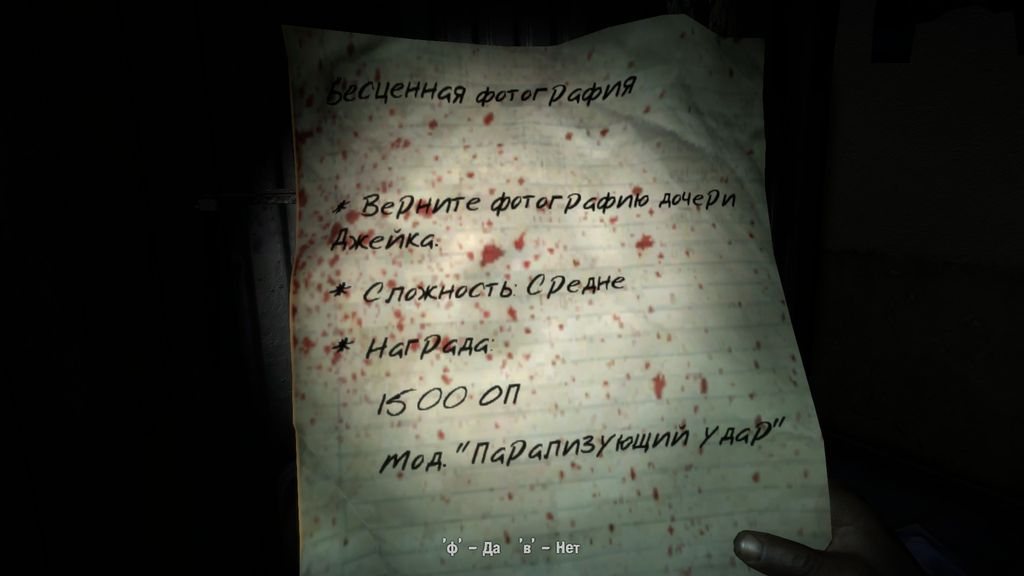 Бесценная фотография
* Верните фотографию дочери
Джейка.
* Сложность: Средне
* Награда:
1500 ОП
Мод. "Парализующий удар"
'ф' – Да 'в' – Нет